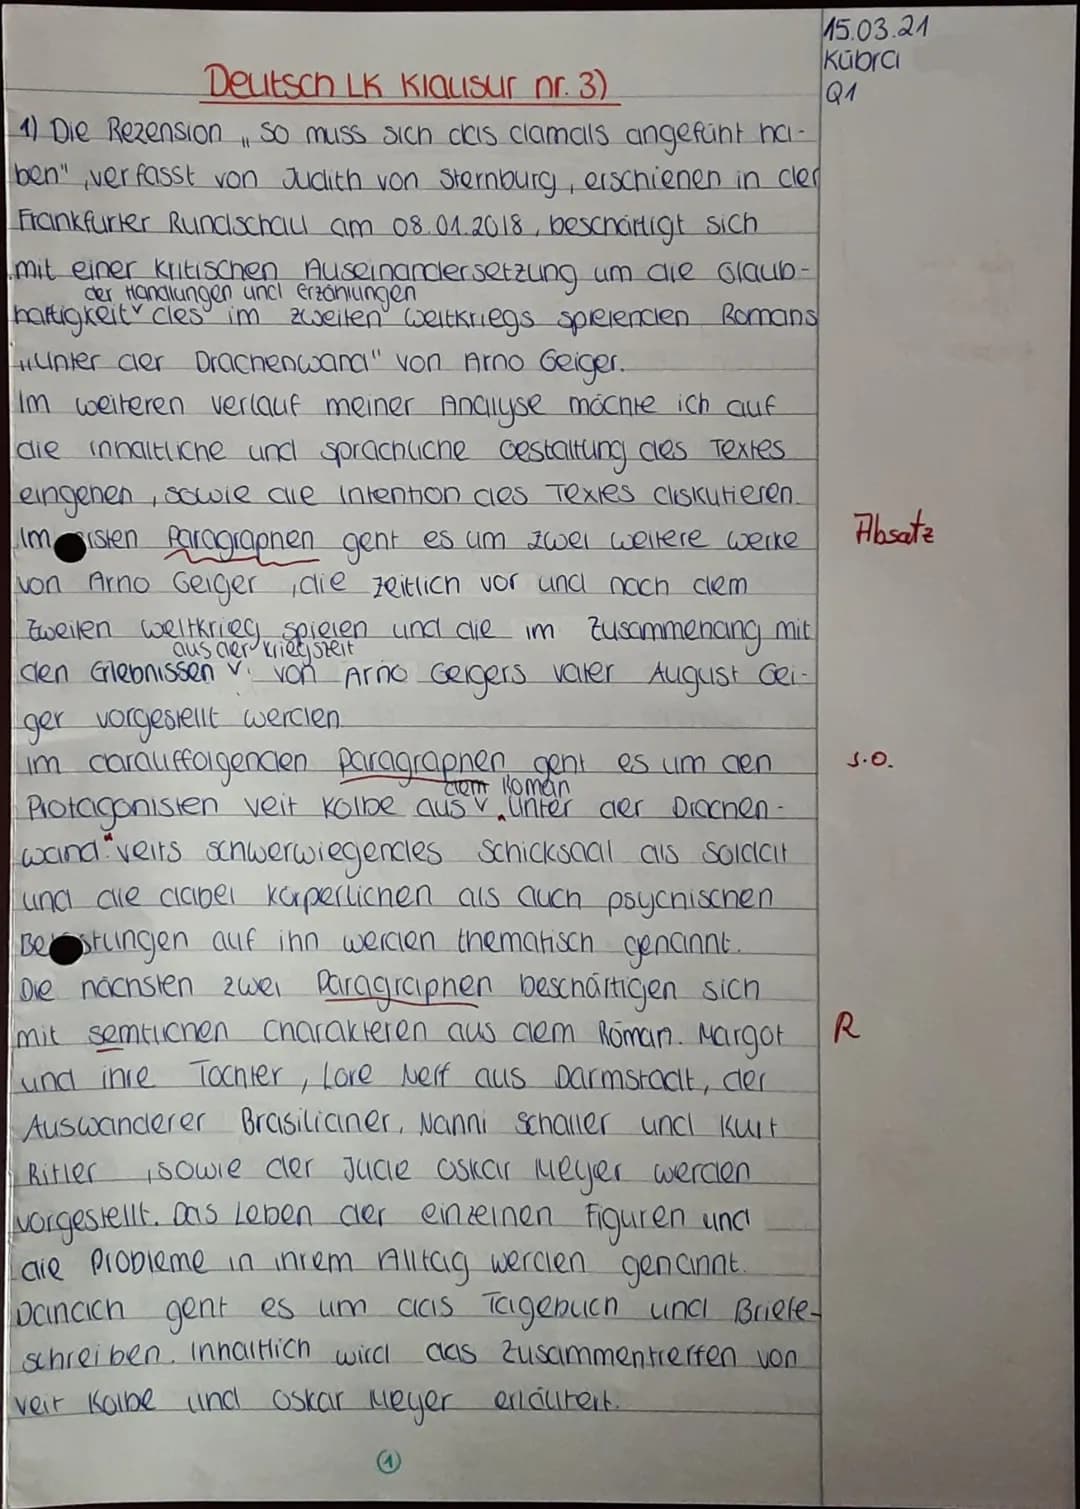 15.03.21
Kübra
Q1
Deutsch LK Klausur nr. 3)
1) Die Rezension „ so muss sich das damals angefühlt ha-
ben", verfasst von Judith von Sternburg, erschienen in der
Frankfurter Rundschau am 08.01.2018, beschäftigt sich
mit einer kritischen Auseinandersetzung um die Glaub-
der Handlungen und Erzählungen
haftigkeit v des im zweiten Weltkriegs spielenden Romans
„Unter der Drachenwand" von Arno Geiger.
Im weiteren verlauf meiner Analyse möchte ich auf
die inhaltliche und sprachliche Gestaltung des Textes
eingehen, sowie die Intention des Textes diskutieren.
Im ersten Paragraphen geht es um zwei weitere werke
Absatz
von Arno Geiger, die zeitlich vor und nach dem
zweiten Weltkrieg spielen und die im Zusammenhang mit
aus der Kriegszeit
den Erlebnissen v von Arno Geigers vater August Gei-
ger vorgestellt werden.
Im darauffolgenden Paragraphen geht es um den
s.o.
dem Roman
Protagonisten Veit Kolbe aus v „Unter der Drachen-
wand". Veits schwerwiegendes Schicksaal als Soldat
und die dabei körperlichen als auch psychischen
Belastungen auf ihn werden thematisch genannt.
Die nächsten zwei Paragraphen beschäftigen sich
mit semtlichen Charakteren aus dem Roman. Margot
R
und ihre Tochter, Lore Neff aus Darmstadt, der
Auswanderer Brasilianer, Nanni Schaller und Kurt
Ritler, sowie der Jude Oskar Meyer werden
vorgestellt. Das Leben der einzelnen Figuren und
die Probleme in ihrem Alltag werden genannt.
Danach geht es um das Tagebuch und Briefe-
schreiben. Inhaltlich wird das Zusammentreffen von
Veit Kolbe und Oskar Meyer erläutert.
1